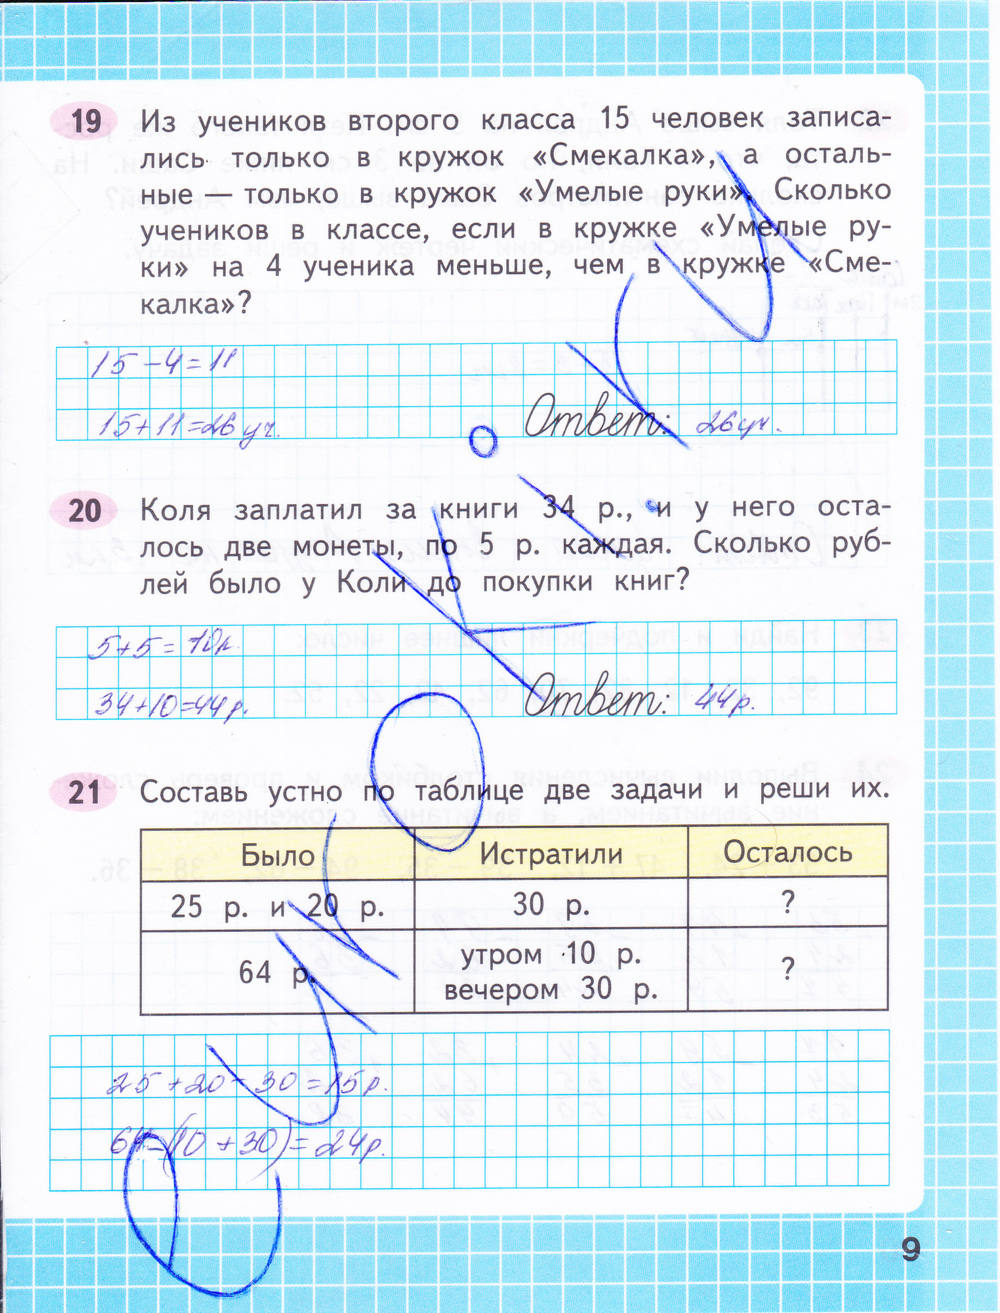 19 Из учеников второго класса 15 человек записа-
лись только в кружок «Смекалка», а осталь-
ные — только в кружок «Умелые руки». Сколько
учеников в классе, если в кружке «Умелые ру-
ки» на 4 ученика меньше, чем в кружке «Сме-
калка»?
15-4=11
15+11=26 уч.
Ответ: 26 уч.
20 Коля заплатил за книги 34 р., и у него оста-
лось две монеты, по 5 р. каждая. Сколько руб-
лей было у Коли до покупки книг?
5+5=10р.
34+10=44р.
Ответ: 44р.
21 Составь устно по таблице две задачи и реши их.
Было Истратили Осталось
25 р. и 20 р. 30 р. ?
64 р. утром 10 р. ?
вечером 30 р.
25+20-30=15р.
64-(10+30)=24р.
9